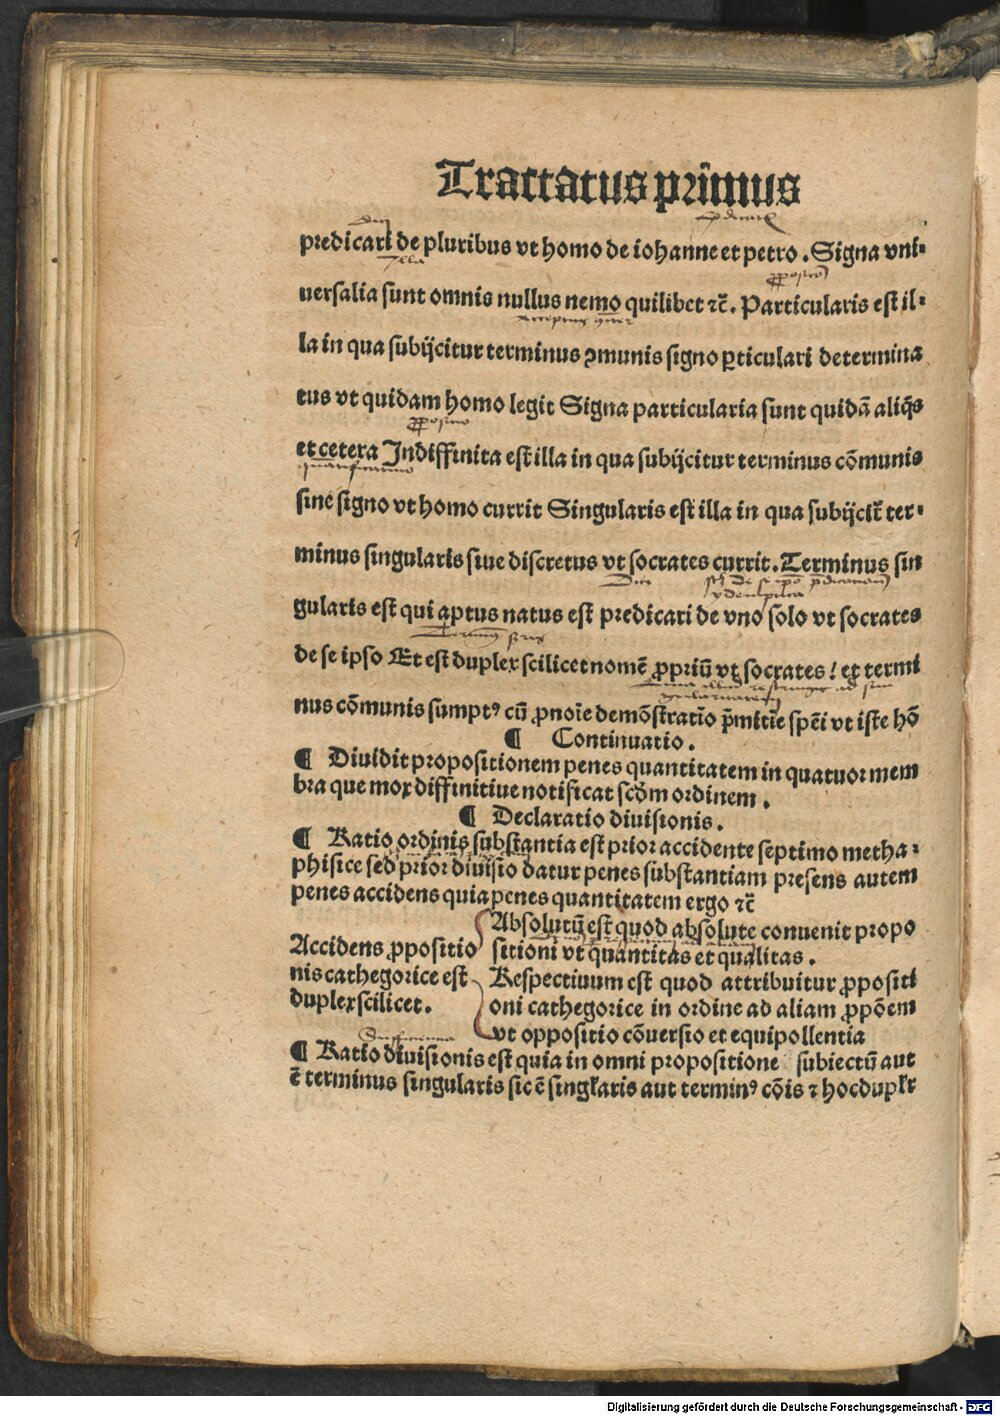 Tractatus prīmus
predicari de pluribus vt homo de iohanne et petro . Signa vni⸗
uersalia sunt omnis nullus nemo quilibet ⁊c̄. Particularis est il⸗
la in qua subijcitur terminus ꝯmunis signo ꝑticulari determina
tus vt quidam homo legit Signa particularia sunt quidā aliq̄s
et cetera Indiffinita est illa in qua subijcitur terminus cōmunis
sine signo vt homo currit Singularis est illa in qua subijcit̄ ter⸗
minus singularis siue discretus vt socrates currit. Terminus sin
gularis est qui aptus natus est predicari de vno solo vt socrates
de se ipso Et est duplex scilicet nomē ꝓpriū vt socrates! et termi
nus cōmunis sumptꝰ cū ꝓnoīe demōstratīo p̄mitīe spēi vt iste hō
¶ Continuatio .
¶ Diuidit propositionem penes quantitatem in quatuor mem
bra que mox diffinitiue notificat scďm ordinem .
¶ Declaratio diuisionis .
¶ Ratio ordinis substantia est prior accidente septimo metha⸗
phisice sed prior diuisio datur penes substantiam presens autem
penes accidens quia penes quantitatem ergo ⁊c̄
Accidens ꝓpositio
nis cathegorice est
duplex scilicet .
Absolutū est quod absolute conuenit propo
sitioni vt quantitas et qualitas .
Respectiuum est quod attribuitur ꝓpositi
oni cathegorice in ordine ad aliam ꝓpōem
vt oppositio cōuersio et equipollentia
¶ Ratio diuisionis est quia in omni propositione subiectū aut
ē terminus singularis sic ē singl̄aris aut terminꝰ cōis ⁊ hoc dupl̄r
Digitalisierung gefördert durch die Deutsche Forschungsgemeinschaft - DFG